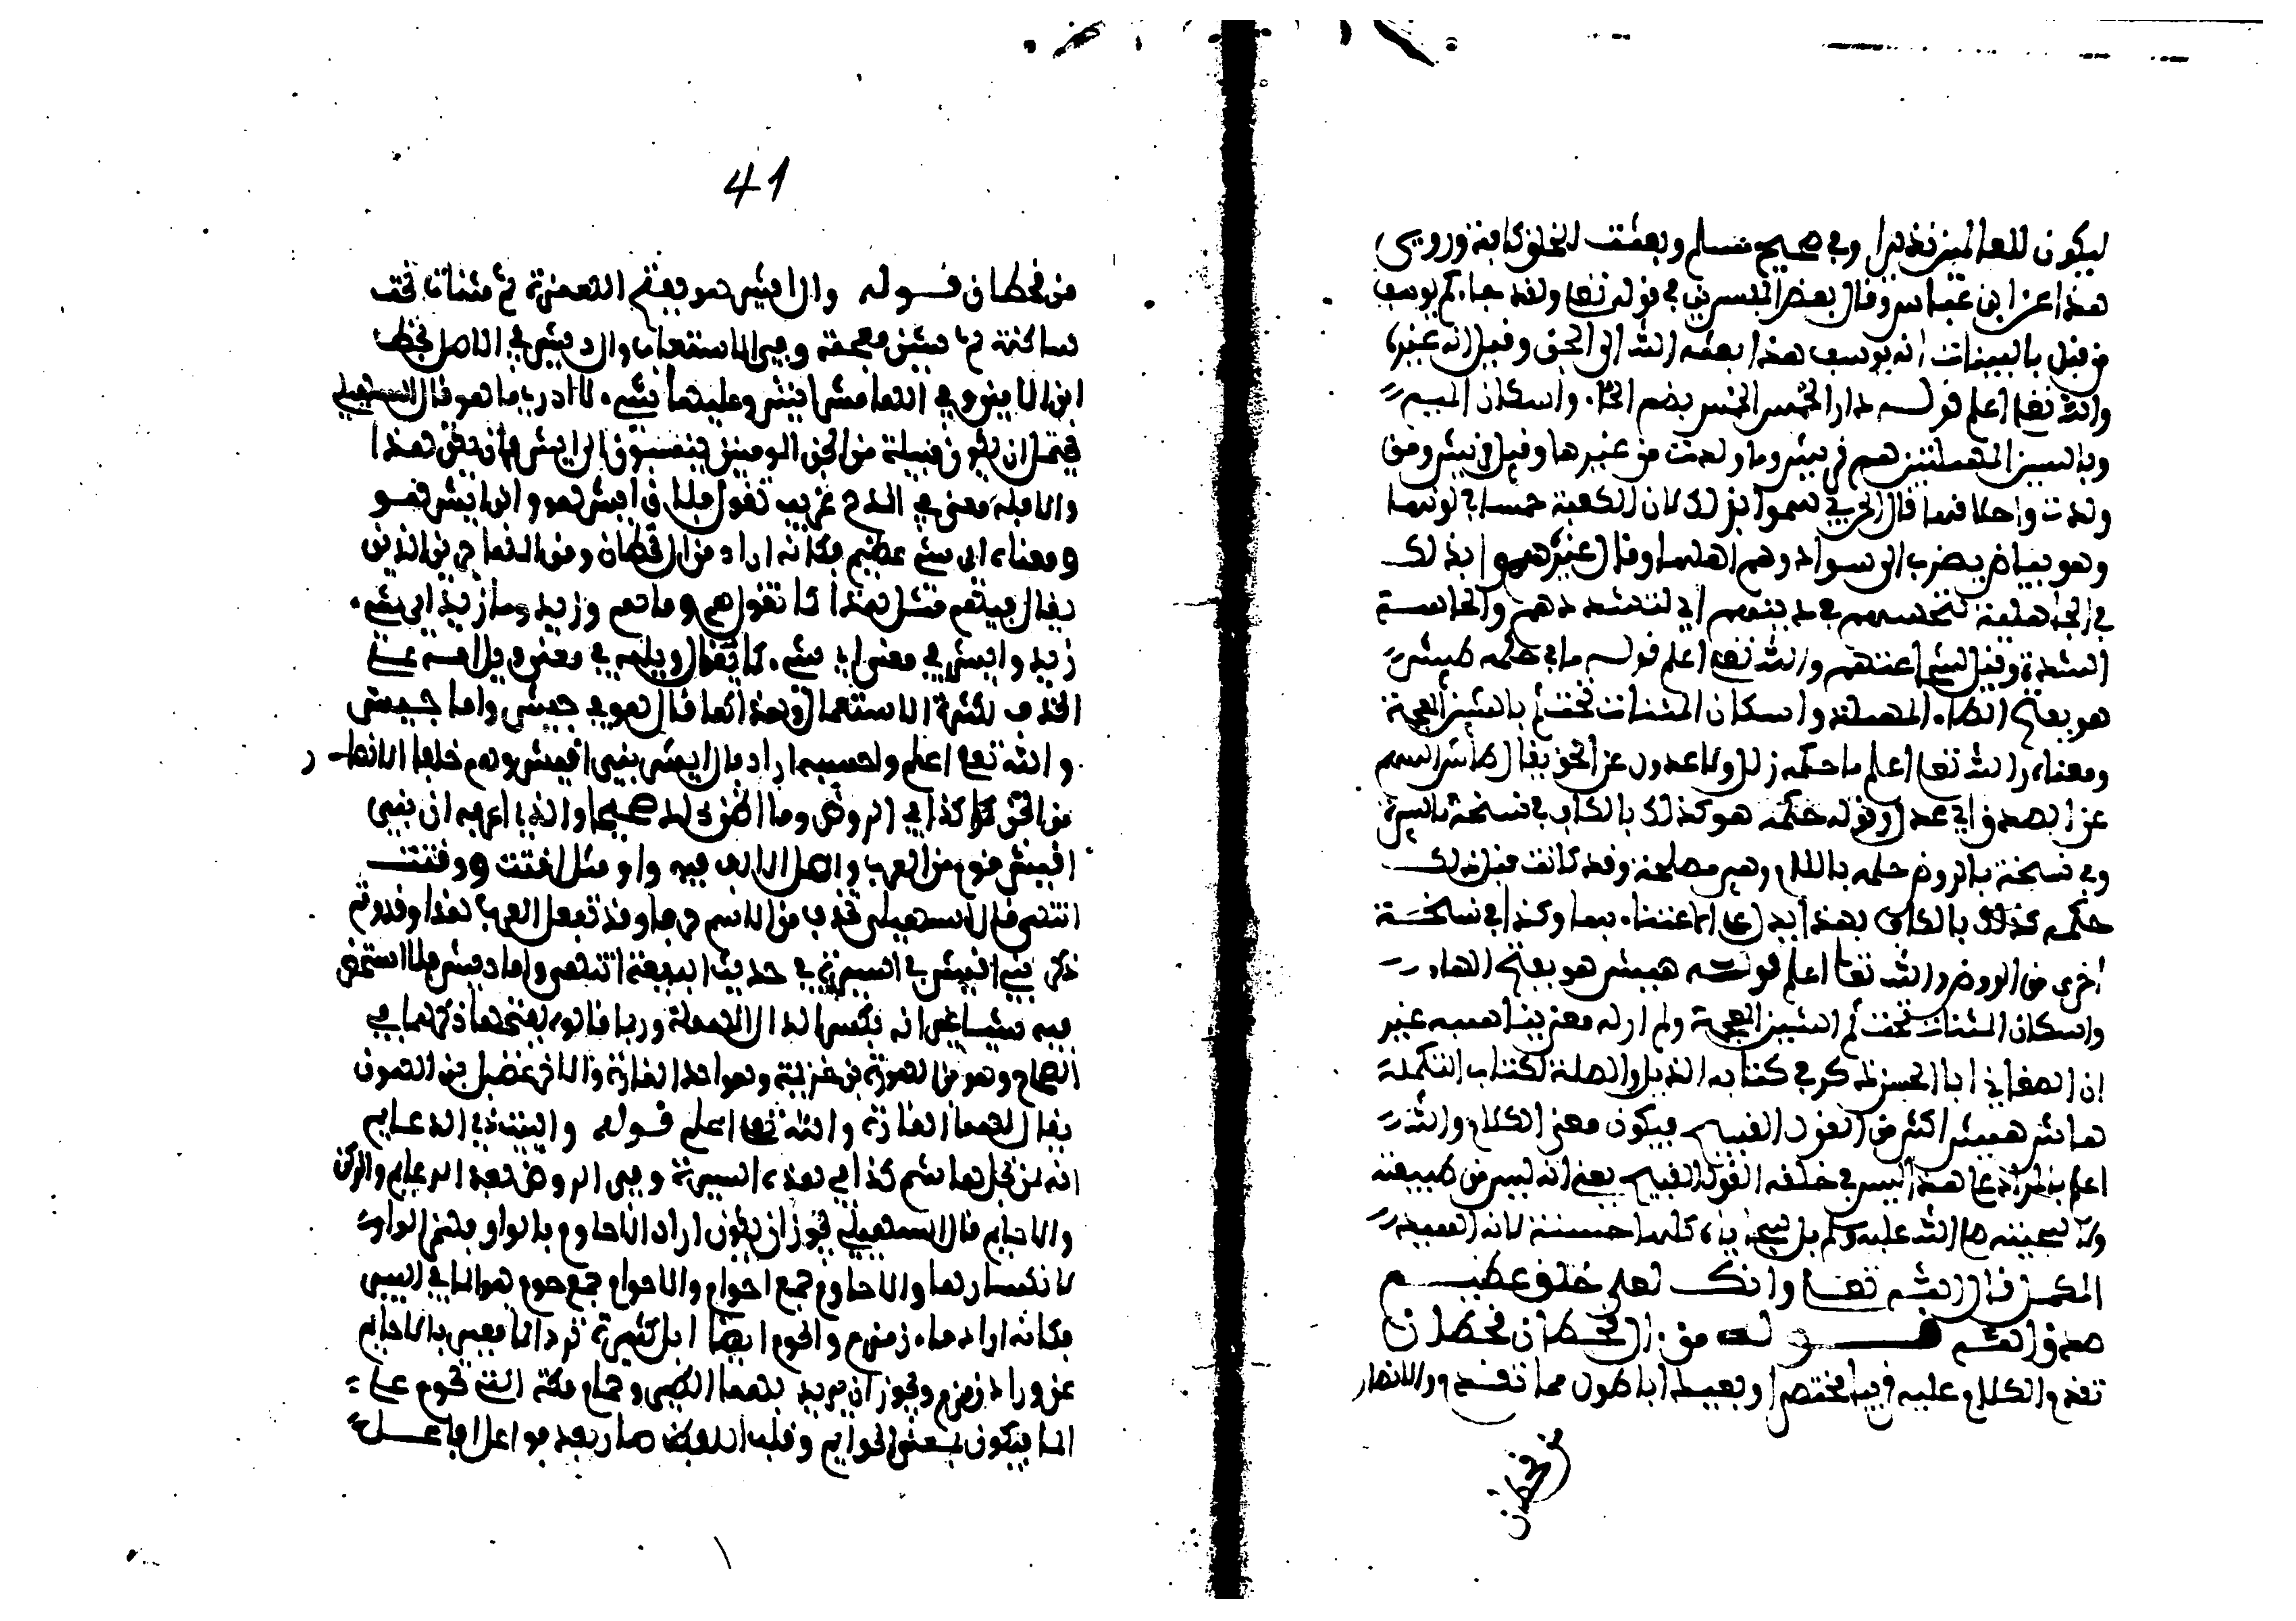 ليكون للعالمين نذيرا وفي صحيح مسلم وبعثت للخلق كافة وروي
هذا عن ابن عباس وقال بعض المفسرين في قوله تعا ولقد جاءكم يوسف
من قبل بالبينات انه يوسف هذا بعثه الله الى الجن وقيل انه غيره
والله تعا اعلم قوله دار الحمس الحمس بضم الحاء واسكان الميم
وبالسين المهملتين هم قريش وما ولدت من غيرها وقيل قريش ومن
ولدت واحلافها قال الحربي سموا بذلك لان الكعبة حمساء في لونها
وهو بياض يضرب الى سواد وهم اهلها وقال غيره سموا بذلك
في الجاهلية لتحمسهم في دينهم اي لتشددهم والحماسة
الشدة وقيل لشجاعتهم والله تعا اعلم قوله ما في حكمه طيش
هو بفتح الطاء المهملة واسكان المثنات تحت ثم بالشين المعجمة
ومعناه والله تعا اعلم ما حكمه زلل ولا عدول عن الحق يقال طاش السهم
عن الهدف اي عدل وقوله حكمه هو كذلك بالكاف في نسخة بالسيرة
وفي نسخة بالروض حلمه باللام وهي مصلحة وقد كانت قبل ذلك
حكمه كذلك بالكاف بهذا يدل على الاعتناء بها وكذا في نسخة
اخرى من الروض والله تعا اعلم قوله هيش هو بفتح الهاء
واسكان المثنات تحت ثم الشين المعجمة ولم ار له معنى يناسبه غير
ان الصغاني ابا الحسن ذكر في كتابه الذيل والصلة لكتاب التكملة
هاش هيشا اكثر من القول القبيح فيكون معنى الكلام والله
اعلم بالمراد على هذا ليس في خلقه القول القبيح يعني انه ليس من طبيعته
ولا سجيته صلى الله عليه وسلم بل سجاياه كلها حسنة لانه السيد
المكمل قال الله تعا وانك لعلى خلق عظيم
صدق الله قوله من ال قحطان قحطان
تقدم الكلام عليه قريبا مختصرا وبعيدا اطول مما تقدم والانصار
من قحطان
41
من قحطان قوله وال افيش هو بفتح الهمزة ثم مثنات تحت
ساكنة ثم شين معجمة وهي الاستفهام وال فيش في الاصل بخط
ابن الامين وفي الهامش افيش وعليها شيء لا ادري ما هو قال السهيلي
يحتمل ان يكون قبيلة من الجن المومنين ينسبون الى ايش فان يكن هذا
والا فله معنى في المدح غريب تقول فلان ايش هو وابن ايش هو
ومعناه اي شيء عظيم فكانه اراد من ال قحطان ومن المهاجرين الذين
يقال فيهم مثل هذا كما تقول هم وما هم وزيد وما زيد اي شيء
زيد وايش في معنى اي شيء كما يقال ويلمه في معنى ويل امه على
الحذف لكثرة الاستعمال وهذا كما قال هو في جيش واما جيش
والله تعا اعلم واحسبه اراد بال ايش بني اقيش وهم حلفاء الانصار
من الجن كذا في الروض وما اظن ذلك صحيحا والذي اعرفه ان بني
اقيش قوم من العرب واصل الالف فيه واو مثل اقتت ووقتت
انتهى قال السهيلي تحذف من الاسم حرفا وقد تفعل العرب هذا وقد وقع
ذكر بني اقيش في السيرة في حديث البيعة انتهى واما ديش فلا استحضر
فيه شيئا غير انه بكسر الدال المهملة وربما قالوه بفتحها ذكرهما في
الصحاح وهو من الهون بن خزيمة وهو احد القارة والاخر عضل بن الهون
يقال لهما القارة والله تعا اعلم قوله والبيت ذي الدعايم
انه من نجل هاشم كذا في هذه السيرة وفي الروض بعد الدعايم والركن
والاحايم قال السهيلي يجوز ان يكون اراد الاحاوم بالواو فهمز الواو
لانكسارها والاحاوم جمع احوام والاحوام جمع حوم هو الماء في البير
فكانه اراد ماء زمزم والحوم ايضا ابل كثيرة ترد الماء فعبر بالاحايم
عن وراد زمزم ويجوز ان يريد بها الطير وحمام مكة التي تحوم على
الماء فيكون بمعنى الحوايم وقلب اللفظ فصار بعد فواعل افاعل